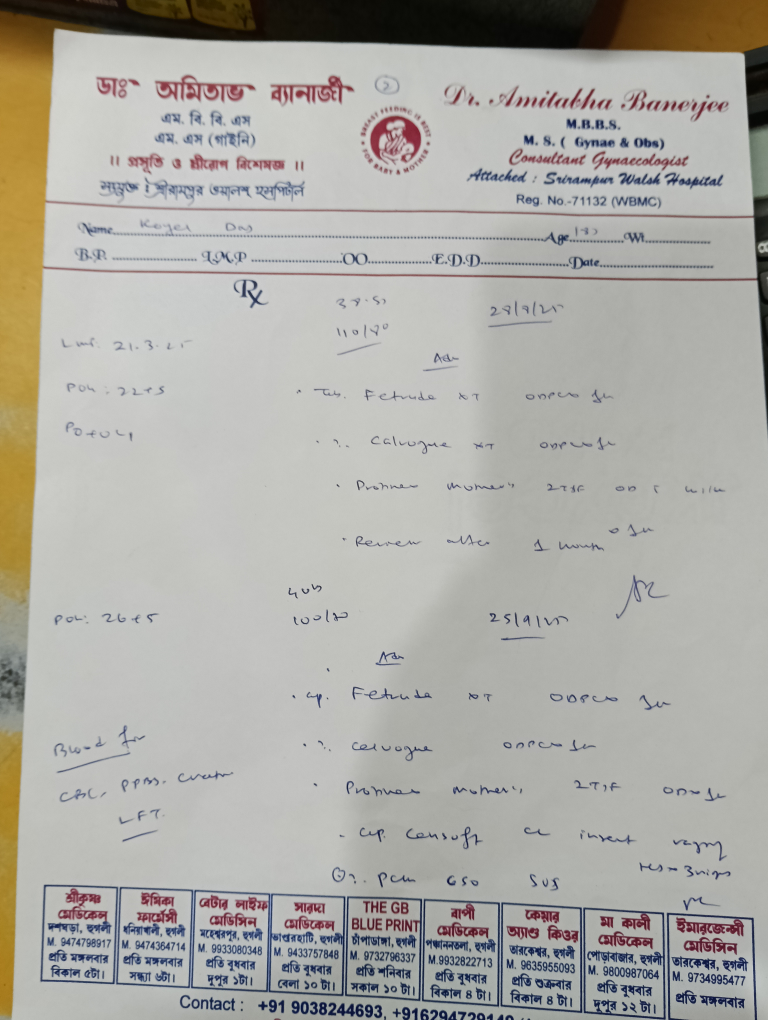 ডাঃ অমিতাভ ব্যানার্জী
এম. বি. বি. এস
এম. এস (গাইনি)
।। প্রসূতি ও স্ত্রীরোগ বিশেষজ্ঞ ।।
সংযুক্ত : শ্রীরামপুর ওয়ালশ হসপিটাল
2
BREAST FEEDING IS BEST FOR BABY & MOTHER
Dr. Amitabha Banerjee
M.B.B.S.
M. S. ( Gynae & Obs)
Consultant Gynaecologist
Attached : Srirampur Walsh Hospital
Reg. No.-71132 (WBMC)
Name Koyel Das Age Wt
B.P. L.M.P OO E.D.D Date
Rx
110/70
LMP: 21.3.25
Adv
POG: 22+5
Tab. Fetrude XT
Calvogue XT
Protinex Mother's 2TSF OD
Review after 1 month
POG: 26+5
100/70
25/9/25
Adv
Cap. Fetrude XT
Calvogue
Blood for
Protinex Mother's 2TSF
CBC, PPBS,
LFT
insert
650 SOS
শ্রীকৃষ্ণ মেডিকেল
দশঘড়া, হুগলী
M. 9474798917
প্রতি মঙ্গলবার
বিকাল ৫টা।
ঈষিকা ফার্মেসী
ধনিয়াখালী, হুগলী
M. 9474364714
প্রতি মঙ্গলবার
সন্ধ্যা ৬টা।
বেটার লাইফ মেডিসিন
মহেশ্বরপুর, হুগলী
M. 9933080348
প্রতি বুধবার
দুপুর ১টা।
সারদা মেডিকেল
ভান্ডারহাটি, হুগলী
M. 9433757848
প্রতি বুধবার
বেলা ১০ টা।
THE GB BLUE PRINT
চাঁপাডাঙ্গা, হুগলী
M. 9732796337
প্রতি শনিবার
সকাল ১০ টা।
বাপী মেডিকেল
পঞ্চাননতলা, হুগলী
M.9932822713
প্রতি বুধবার
বিকাল ৪ টা।
কেয়ার অ্যাণ্ড কিওর
তারকেশ্বর, হুগলী
M. 9635955093
প্রতি শুক্রবার
বিকাল ৪ টা।
মা কালী মেডিকেল
পোড়াবাজার, হুগলী
M. 9800987064
প্রতি বুধবার
দুপুর ১২ টা।
ইমারজেন্সী মেডিসিন
তারকেশ্বর, হুগলী
M. 9734995477
প্রতি মঙ্গলবার
Contact : +91 9038244693,